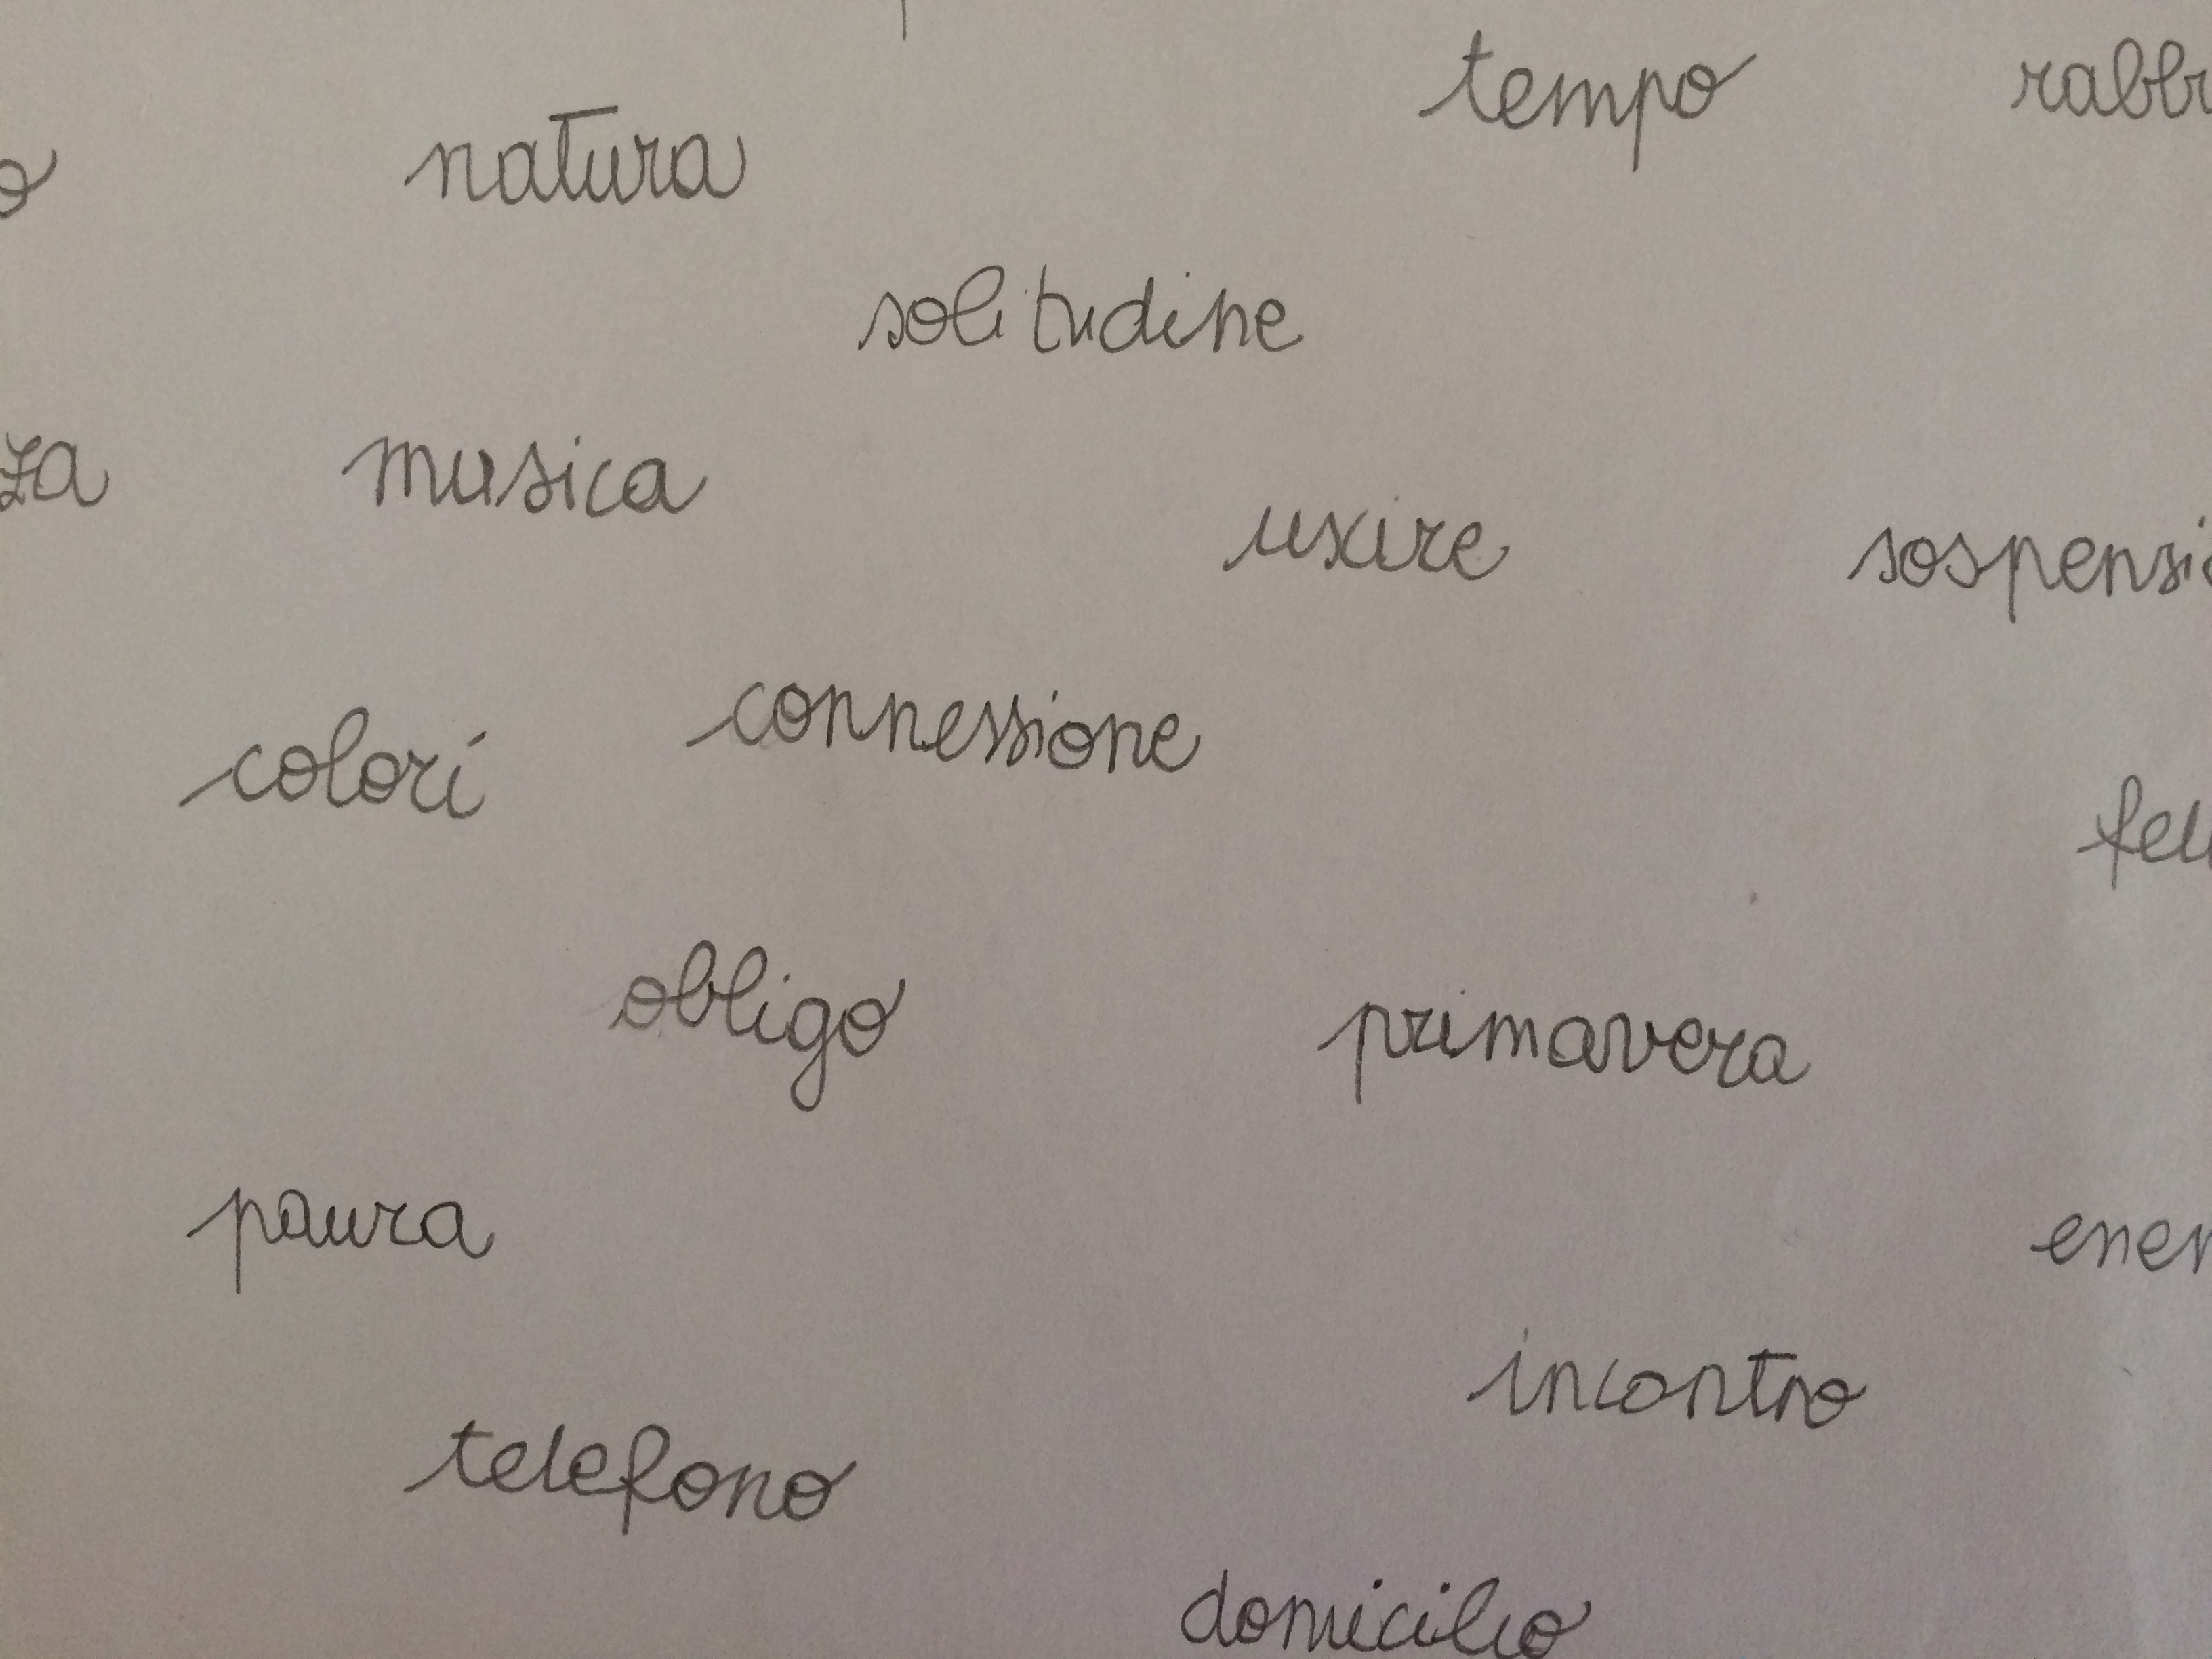 tempo rabbi
o natura
solitudine
za musica
uscire sospensio
connessione
colori
feli
obligo primavera
paura
ener
incontro
telefono
domicilio